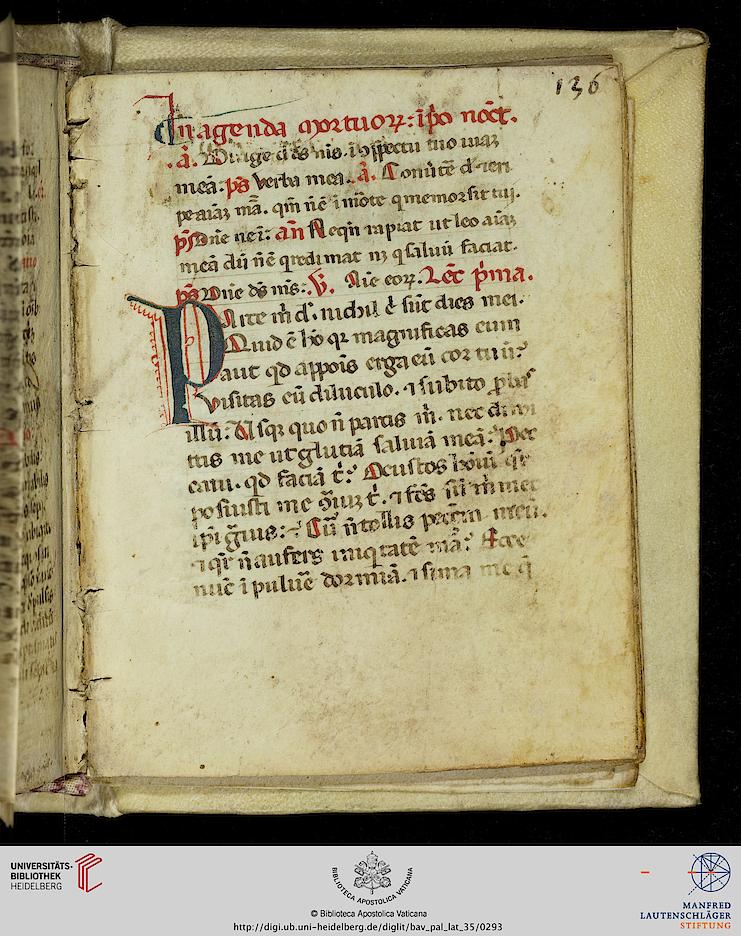 136
In agenda mortuoꝝ: ī pͦo noct̄.
.a. Dirige dn̄s ds̄ ms. ī ↄspectu tuo uiaꝫ
meā. ps̄ Verba mea. a. Conu̇tē dn̄e ⁊ eripe
aiaꝫ mā. qm̄ nō ē ī mōte q memor sit tui.
ps̄ Dn̄e ne ī. an̄ Neqn̄ rapiat ut leo aiāꝫ
meā dū nō ē qͥ redimat nꝫ qͥ saluū faciat.
ps̄ Dn̄e ds̄ ms. V. A porta inferi. Lec̄t pͥma.
Parce m̄ dn̄e. nichil .n. sūt dies mei.
Quid ē hō qꝛ magnificas eum
aut qͥd appōis erga eū cor tuū?
Visitas eū diluculo. ⁊ subito ꝓbas
illū: Usqꝫ quo n̄ parcis m̄. nec dimi
ttis me ut glutiā saliuā meā: Pec
caui. qͥd faciā t̄: O custos hoīm qͣre
posuisti me ↄͣriuꝫ t̄. ⁊ fc̄s sū m̄ met
ipī gͣuis: Cū n̄ tollis pecc̄m meū.
⁊ qͣr n̄ aufers iniqͥtatē mā: Ecce
nūc ī puluē dormiā. ⁊ si ma me q̄
UNIVERSITÄTS-
BIBLIOTHEK
HEIDELBERG
BIBLIOTECA APOSTOLICA VATICANA
© Biblioteca Apostolica Vaticana
http://digi.ub.uni-heidelberg.de/diglit/bav_pal_lat_35/0293
MANFRED
LAUTENSCHLÄGER
STIFTUNG